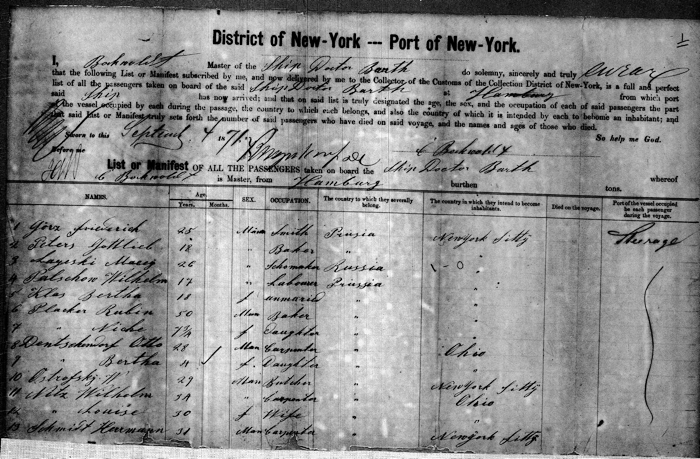 District of New-York --- Port of New-York.
I, Bockwoldt Master of the Ship Doctor Barth do solemny, sincerely and truly swear
that the following List or Manifest subscribed by me, and now delivered by me to the Collector of the Customs of the Collection District of New-York, is a full and perfect
list of all the passengers taken on board of the said Ship Doctor Barth at Hamburg from which port
said Ship has now arrived; and that on said list is truly designated the age, the sex, and the occupation of each of said passengers the part
of the vessel occupied by each during the passage, the country to which each belongs, and also the country of which it is intended by each to become an inhabitant; and
that said List or Manifest truly sets forth the number of said passengers who have died on said voyage, and the names and ages of those who died.
So help me God.
Sworn to this Septemb 4 1871
Before me C Bockwoldt
List or Manifest OF ALL THE PASSENGERS taken on board the Ship Doctor Barth whereof
C Bockwoldt is Master, from Hamburg burthen tons.
NAMES. Age. Years. Months. SEX. OCCUPATION. The country to which they severally belong. The country in which they intend to become inhabitants. Died on the voyage. Part of the vessel occupied by each passenger during the voyage.
1 Friederich 25 Man Smith Prusia Newyork Sitty Sterage
2 Peters Gottlieb 18 " Baker " "
3 26 " Schomaker Russia "
4 Wilhelm 17 " Labourer Prussia "
5 Klas Bertha 18 f unmaried " "
6 Rubin 50 Man Baker " "
7 " 7¾ f Daughter " "
8 Otto 28 Man Carpentor " Ohio
9 " Bertha 4 f Daughter " "
10 29 Man Butcher " Newyork Sitty
11 Nitz Wilhelm 34 " Carpentor " Ohio
12 " Louise 30 f Wife " "
13 Schmidt Hermann 31 Man Carpentor " Newyork Sitty